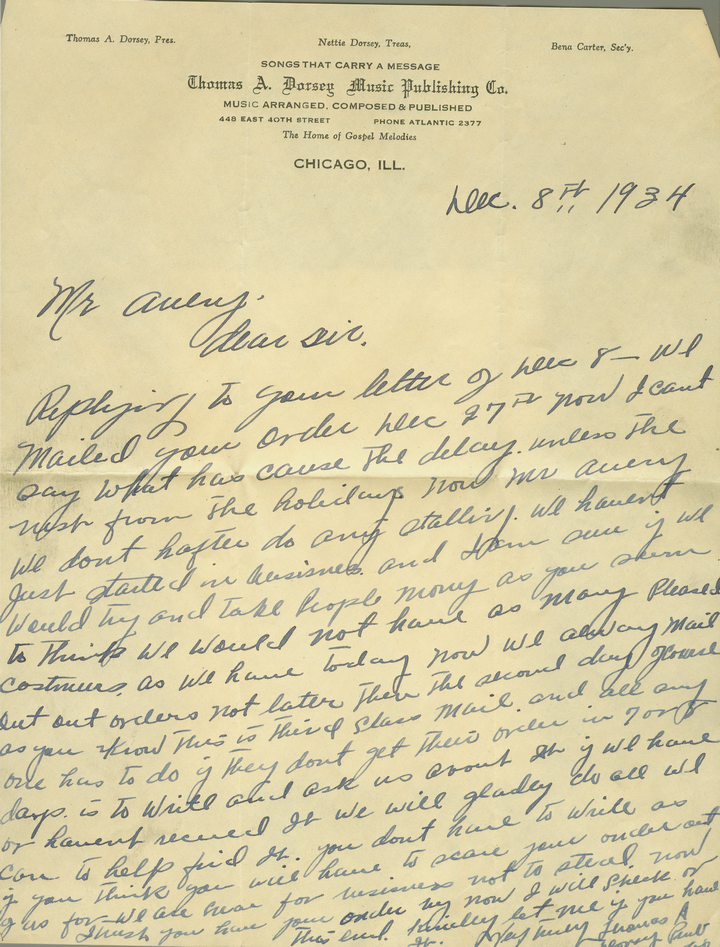 Thomas A. Dorsey, Pres.
Nettie Dorsey, Treas,
Bena Carter, Sec'y.
SONGS THAT CARRY A MESSAGE
Thomas A. Dorsey Music Publishing Co.
MUSIC ARRANGED, COMPOSED & PUBLISHED
448 EAST 40TH STREET PHONE ATLANTIC 2377
The Home of Gospel Melodies
CHICAGO, ILL.
Dec. 8th 1934
Mr Avery.
Dear Sir.
Replying to your letter of Dec 8 – We
Mailed your order Dec 27th now I cant
say what has cause the delay. unless the
rush from the holidays now Mr Avery
We dont hafter do any stalling. We havent
Just started in buisness. and I am sure if we
Would try and take people mony as you seem
to think We Would not have as many Pleased
costmers. as We have today now We alway Mail
out out orders not later then the second day of course
as you know this is third Class Mail. and all any
one has to do if they dont get their order in 7 or 8
days. is to Write and ask us about It if We have
or havent receved It we will gladley do all We
can to help find It. you dont have to Write as
if you think you will have to scare your order out
of us for We are hear for buisness not to steal. now
I trust you have your order by now I will Check
This end. kindley let me if you have
It. Thomas A
Dorsey Pub